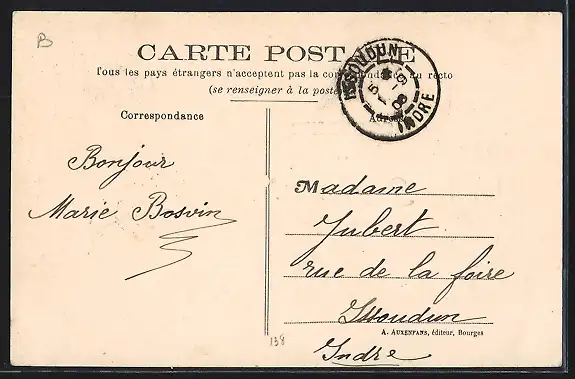 B
CARTE POSTALE
Tous les pays étrangers n'acceptent pas la correspondance au recto
(se renseigner à la poste)
ISSOUDUN
INDRE
Correspondance
Adresse
Bonjour
Marie Bosvin
Madame
Jubert
rue de la foire
Issoudun
A. AUXENFANS, éditeur, Bourges
Indre
138